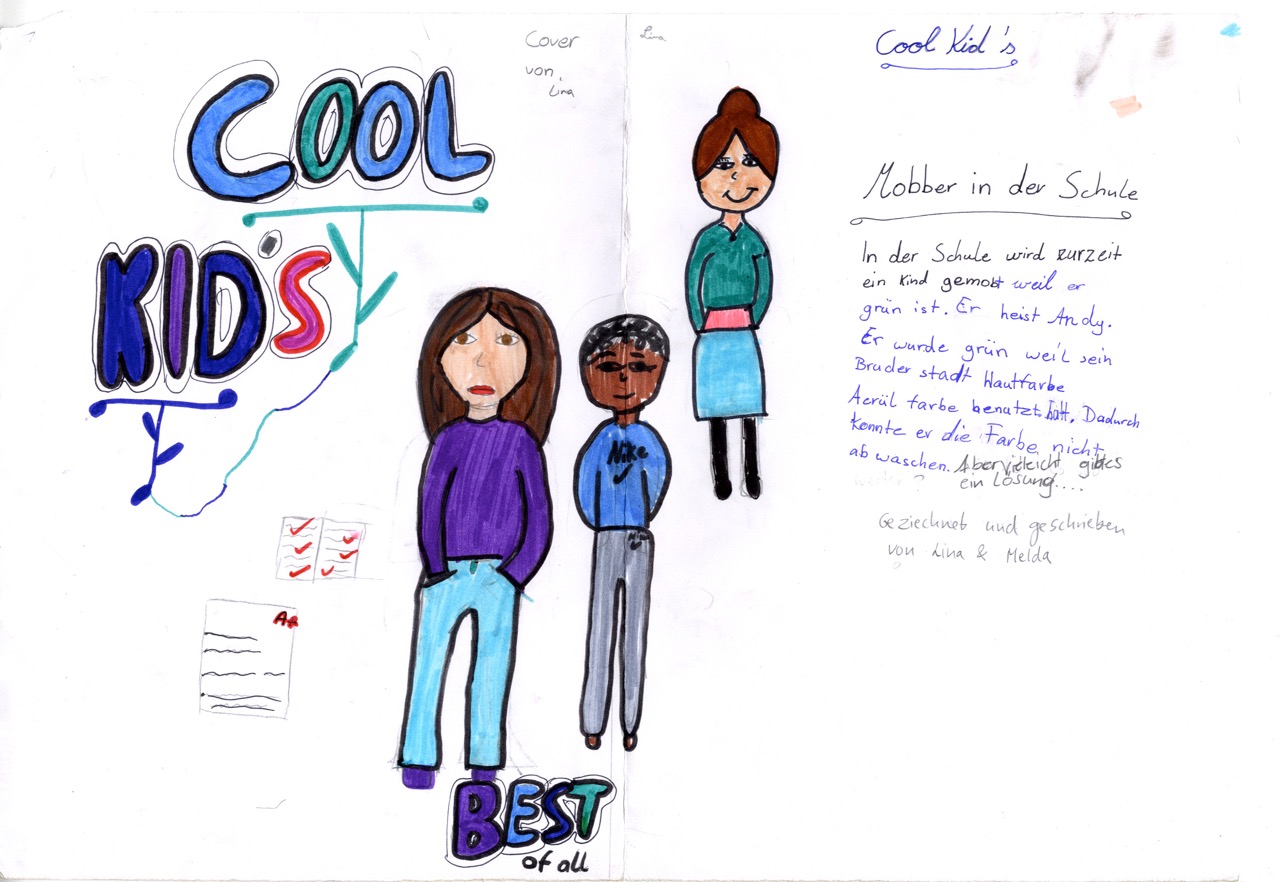 COOL
KID'S
Cover
von
Lina
Nike
Nike
A+
BEST
of all
Lina
Cool Kid's
Mobber in der Schule
In der Schule wird zurzeit
ein Kind gemobt weil er
grün ist. Er heist Andy.
Er wurde grün weil sein
Bruder stadt Hautfarbe
Acrül farbe benutzt hatt. Dadurch
konnte er die Farbe nicht
ab waschen. Aber vieleicht gibt es
ein Lösung....
Geziechnet und geschrieben
von Lina & Melda